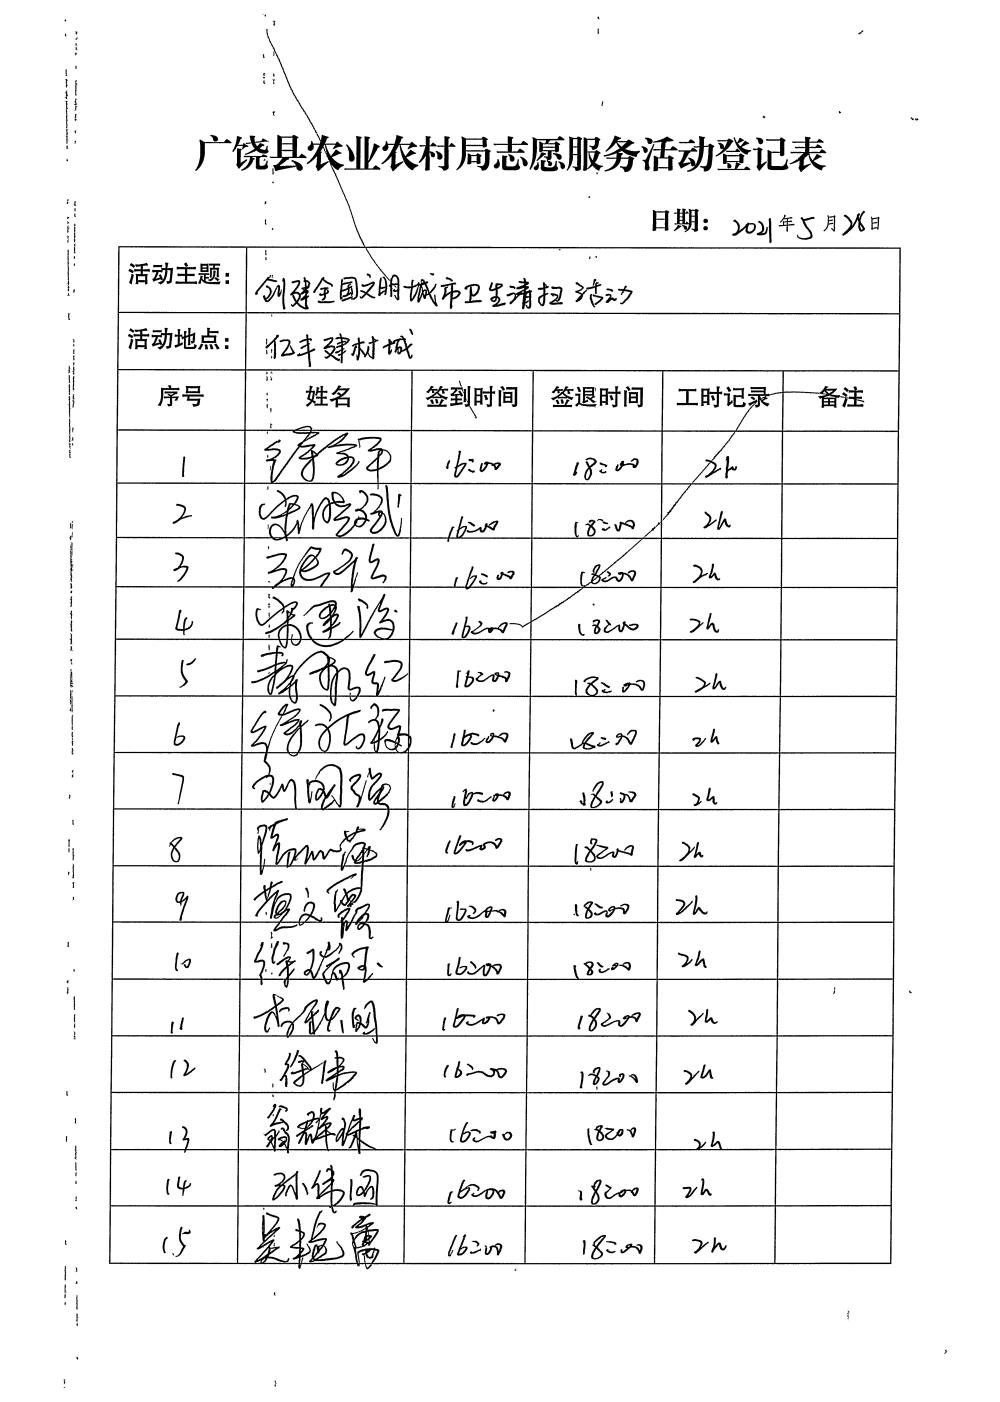 广饶县农业农村局志愿服务活动登记表
日期： 2021年5月28日
活动主题： 创建全国文明城市卫生清扫活动
活动地点： 亿丰建材城
序号 姓名 签到时间 签退时间 工时记录 备注
1 16:00 18:00 2h
2 宋晓斌 16:00 18:00 2h
3 16:00 18:00 2h
4 16:00 18:00 2h
5 16:00 18:00 2h
6 16:00 18:00 2h
7 刘国强 16:00 18:00 2h
8 16:00 18:00 2h
9 黄文霞 16:00 18:00 2h
10 徐瑞玉 16:00 18:00 2h
11 16:00 18:00 2h
12 徐伟 16:00 18:00 2h
13 翁群珠 16:00 18:00 2h
14 孙伟国 16:00 18:00 2h
15 16:00 18:00 2h